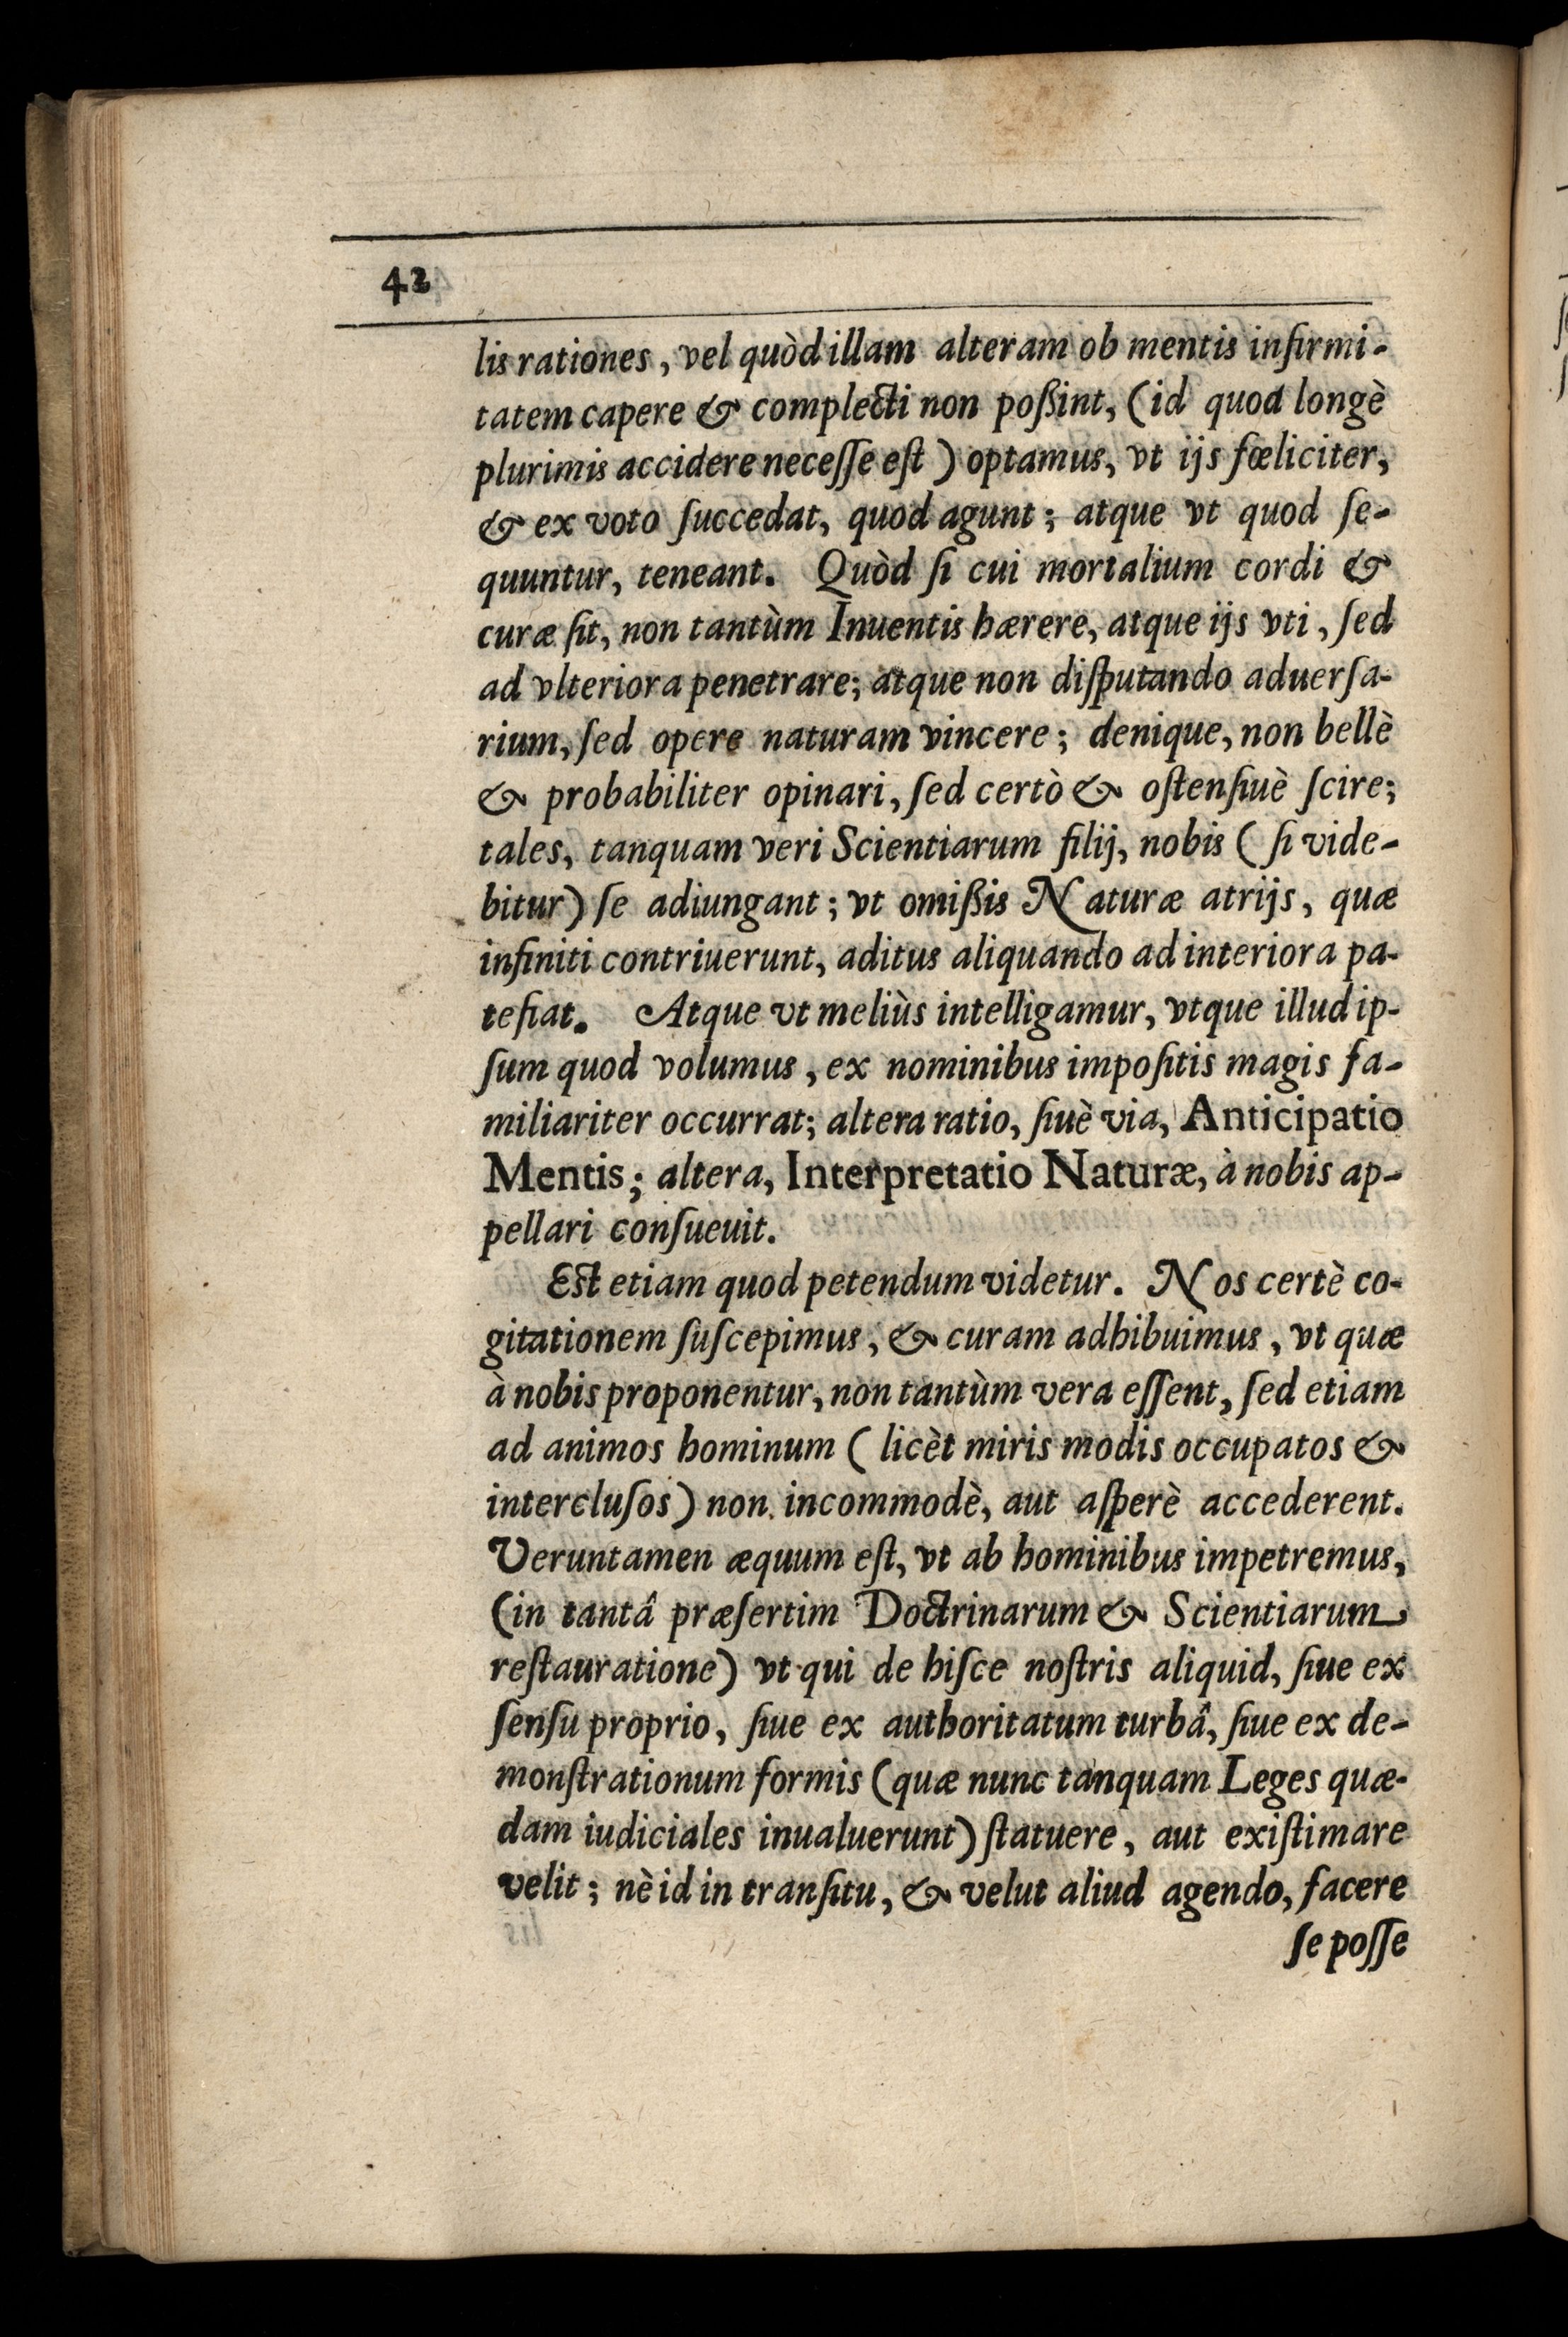 42
lis rationes, vel quòd illam alteram ob mentis infirmi-
tatem capere & complecti non poßint, (id quod longè
plurimis accidere neceſſe eſt) optamus, vt ijs fœliciter,
& ex voto ſuccedat, quod agunt; atque vt quod ſe-
quuntur, teneant. Quòd ſi cui mortalium cordi &
curæ ſit, non tantùm Inuentis hærere, atque ijs vti, ſed
ad vlteriora penetrare; atque non diſputando aduerſa-
rium, ſed opere naturam vincere; denique, non bellè
& probabiliter opinari, ſed certò & oſtenſiuè ſcire;
tales, tanquam veri Scientiarum filij, nobis (ſi vide-
bitur) ſe adiungant; vt omißis Naturæ atrijs, quæ
infiniti contriuerunt, aditus aliquando ad interiora pa-
tefiat. Atque vt meliùs intelligamur, vtque illud ip-
ſum quod volumus, ex nominibus impoſitis magis fa-
miliariter occurrat; altera ratio, ſiuè via, Anticipatio
Mentis; altera, Interpretatio Naturæ, à nobis ap-
pellari conſueuit.
Eſt etiam quod petendum videtur. Nos certè co-
gitationem ſuſcepimus, & curam adhibuimus, vt quæ
à nobis proponentur, non tantùm vera eſſent, ſed etiam
ad animos hominum (licèt miris modis occupatos &
intercluſos) non incommodè, aut aſperè accederent.
Veruntamen æquum eſt, vt ab hominibus impetremus,
(in tantâ præſertim Doctrinarum & Scientiarum
reſtauratione) vt qui de hiſce noſtris aliquid, ſiue ex
ſenſu proprio, ſiue ex authoritatum turbâ, ſiue ex de-
monſtrationum formis (quæ nunc tanquam Leges quæ-
dam iudiciales inualuerunt) ſtatuere, aut exiſtimare
velit; nè id in tranſitu, & velut aliud agendo, facere
ſe poſſe